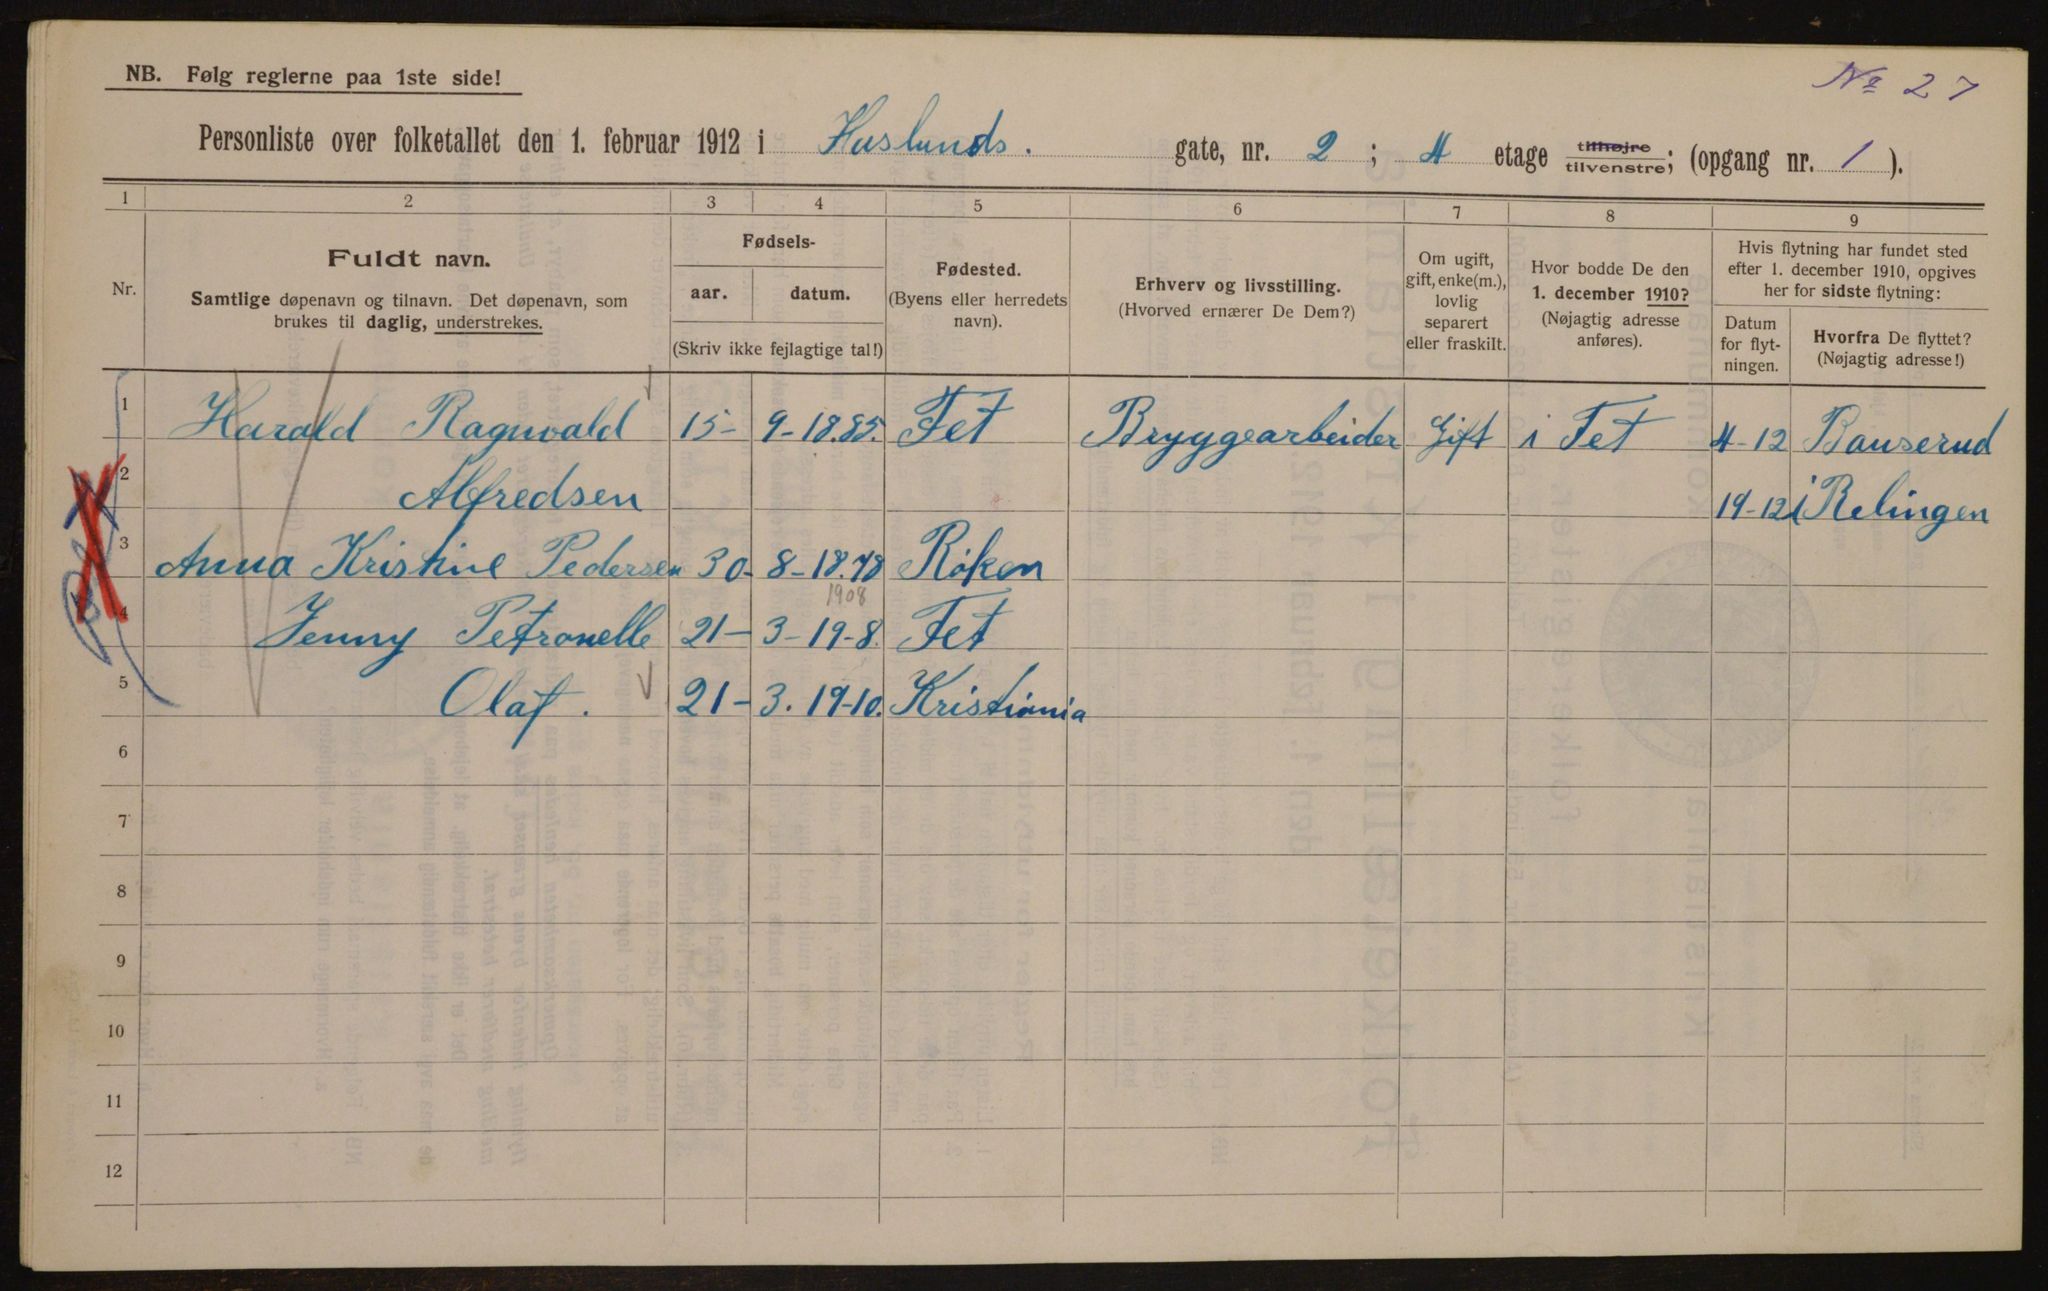 NB. Følg reglerne paa 1ste side!
№ 27
Personliste over folketallet den 1. februar 1912 i Haslunds. gate, nr. 2 ; 4 etage tilhøjre tilvenstre; (opgang nr. 1 ).
1 2 3 4 5 6 7 8 9
Nr.
Fuldt navn.
Samtlige døpenavn og tilnavn. Det døpenavn, som
brukes til daglig, understrekes.
Fødsels-
aar. datum.
(Skriv ikke fejlagtige tal!)
Fødested.
(Byens eller herredets
navn).
Erhverv og livsstilling.
(Hvorved ernærer De Dem?)
Om ugift,
gift, enke(m.),
lovlig
separert
eller fraskilt.
Hvor bodde De den
1. december 1910?
(Nøjagtig adresse
anføres).
Hvis flytning har fundet sted
efter 1. december 1910, opgives
her for sidste flytning:
Datum
for flyt-
ningen.
Hvorfra De flyttet?
(Nøjagtig adresse!)
1 Harald Ragnvald 15- 9-18.85. Fet Bryggearbeider Gift i Fet 4-12 Bauserud
2 Alfredsen 19-12 i Relingen
3 Anna Kristine Pedersen 30- 8-18.78 Røken
1908
4 Jenny Petronelle 21- 3-19-8. Fet
5 Olaf. 21- 3. 19-10. Kristiania
6
7
8
9
10
11
12